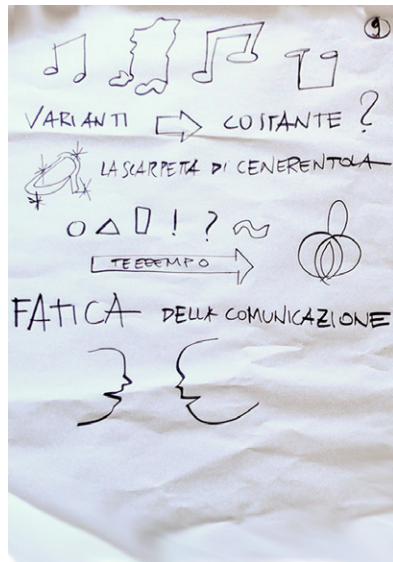 9
VARIANTI COSTANTE ?
LA SCARPETTA DI CENERENTOLA
! ?
TEEEEMPO
FATICA DELLA COMUNICAZIONE